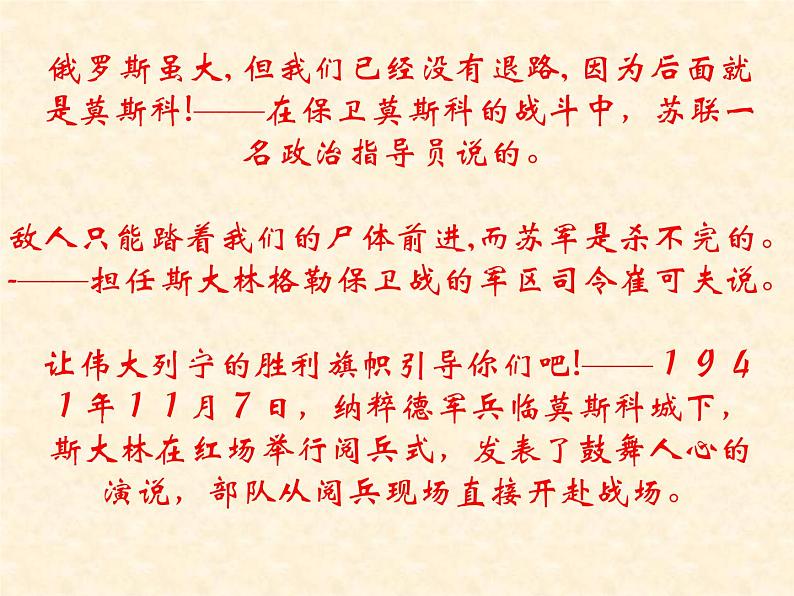 俄罗斯虽大,但我们已经没有退路,因为后面就
是莫斯科!——在保卫莫斯科的战斗中，苏联一
名政治指导员说的。
敌人只能踏着我们的尸体前进,而苏军是杀不完的。
-——担任斯大林格勒保卫战的军区司令崔可夫说。
让伟大列宁的胜利旗帜引导你们吧!——１９４
１年１１月７日，纳粹德军兵临莫斯科城下，
斯大林在红场举行阅兵式，发表了鼓舞人心的
演说，部队从阅兵现场直接开赴战场。